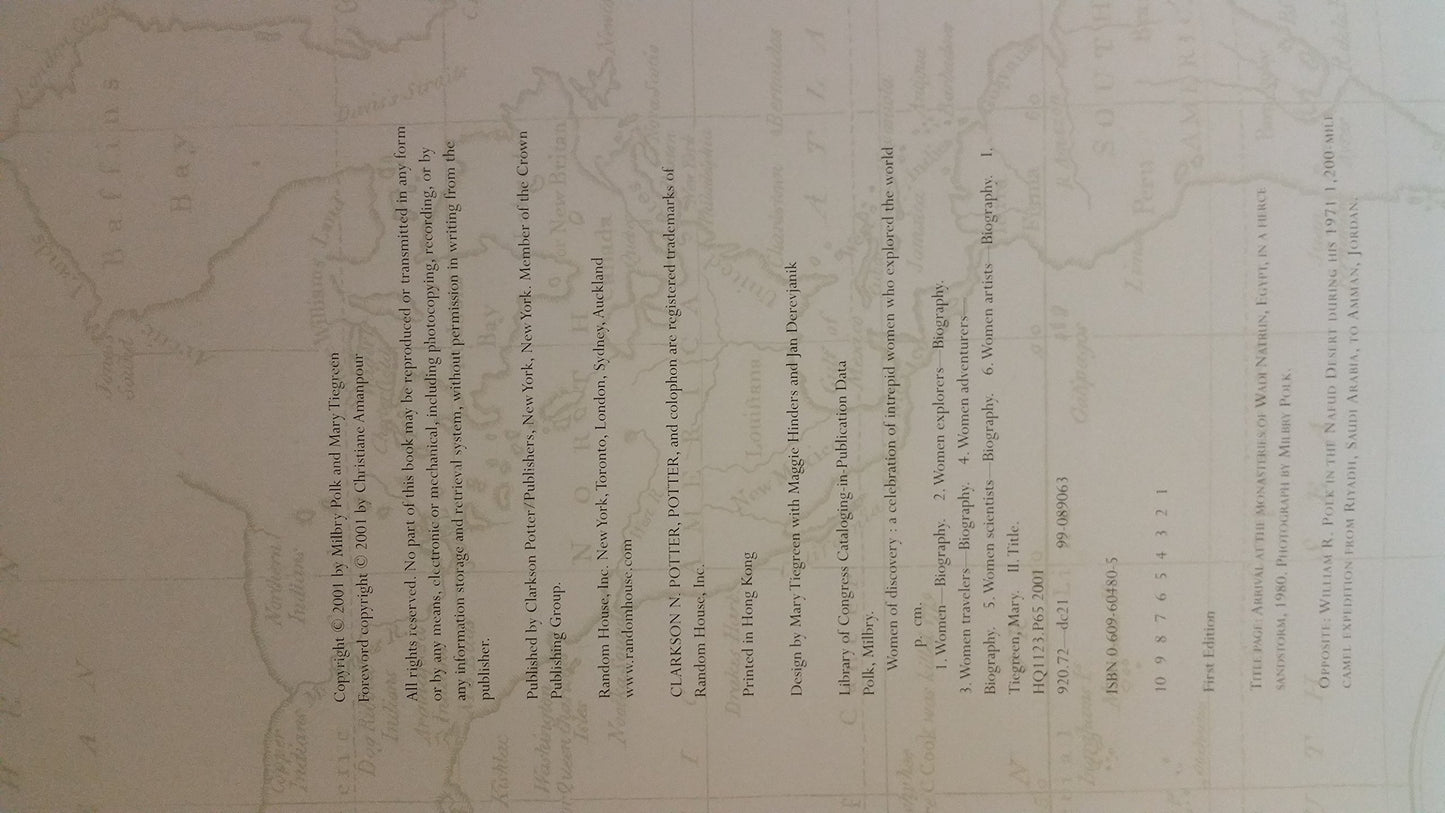 Copyright © 2001 by Milbry Polk and Mary Tiegreen
Foreword copyright © 2001 by Christiane Amanpour
All rights reserved. No part of this book may be reproduced or transmitted in any form
or by any means, electronic or mechanical, including photocopying, recording, or by
any information storage and retrieval system, without permission in writing from the
publisher.
Published by Clarkson Potter/Publishers, New York, New York. Member of the Crown
Publishing Group.
Random House, Inc. New York, Toronto, London, Sydney, Auckland
www.randomhouse.com
CLARKSON N. POTTER, POTTER, and colophon are registered trademarks of
Random House, Inc.
Printed in Hong Kong
Design by Mary Tiegreen with Maggie Hinders and Jan Derevjanik
Library of Congress Cataloging-in-Publication Data
Polk, Milbry.
Women of discovery : a celebration of intrepid women who explored the world
p. cm.
1. Women—Biography. 2. Women explorers—Biography.
3. Women travelers—Biography. 4. Women adventurers—
Biography. 5. Women scientists—Biography. 6. Women artists—Biography. I.
Tiegreen, Mary. II. Title.
HQ1123.P65 2001
920.72—dc21 99-089063
ISBN 0-609-60480-5
10 9 8 7 6 5 4 3 2 1
First Edition
TITLE PAGE: ARRIVAL AT THE MONASTERIES OF WADI NATRUN, EGYPT, IN A FIERCE
SANDSTORM, 1980. PHOTOGRAPH BY MILBRY POLK.
OPPOSITE: WILLIAM R. POLK IN THE NAFUD DESERT DURING HIS 1971 1,200-MILE
CAMEL EXPEDITION FROM RIYADH, SAUDI ARABIA, TO AMMAN, JORDAN.
Baffins
Bay
James
Sound
Davis's Straits
Williams Land
Copper
Indians
Bay
New Britain
NORTH
AMERICA
Louisiana
United
Bermudas
Gallipagos
Lima
Peru
SOUTH
AMERI